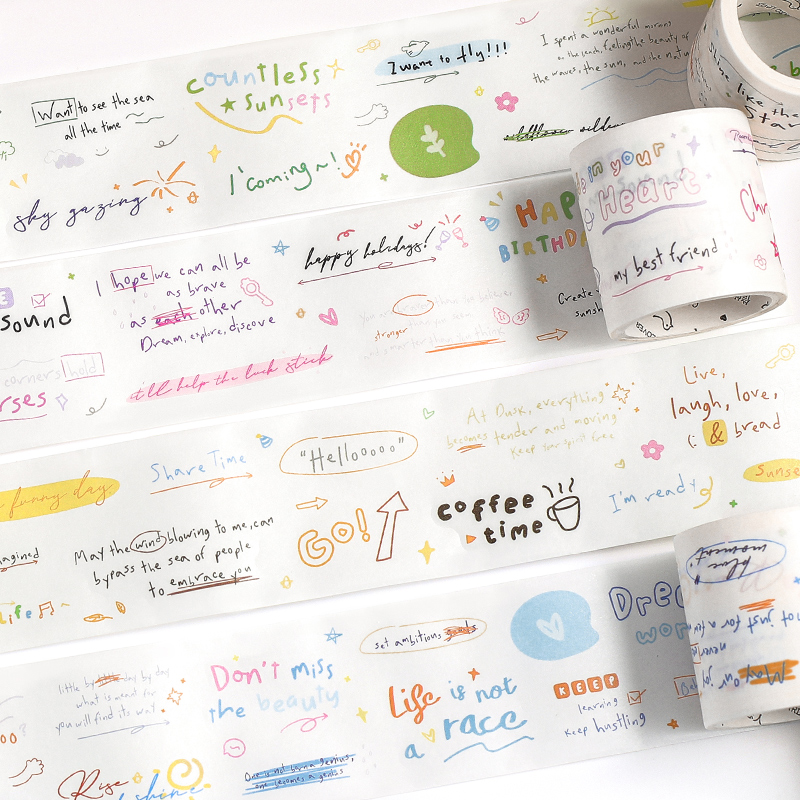 Want to see the sea
all the time
countless
sunsets
I want to fly!!!
I spent a wonderful morning
on the beach, feeling the beauty of
the waves, the sun, and the
sky gazing
I'coming~!
like the
Star
in your
Heart
my best friend
sound
I hope we can all be
as brave
as each other
Dream, explore, discove
happy holidays!
HAP
BIRTHDA
Create
sunsh
stronger
corners hold
rses
it'll help the luck stick
funny day
Share Time
"Hellooooo"
At Dusk, everything
becomes tender and moving
keep our spirit free
Live,
laugh, love,
(: & bread
agined
May the wind blowing to me, can
bypass the sea of people
to embrace you
Go!
coffee
time
I'm ready
Sunse
life
little by little day by day
what is meant for
you will find its way
Don't miss
the beauty
set ambitious goals
Life is not
a race
Dre
wor
KEEP
learning
keep hustling
moment
not just for a few
never
May our joy
Rise
shine
One is not born a genius,
one becomes a genius